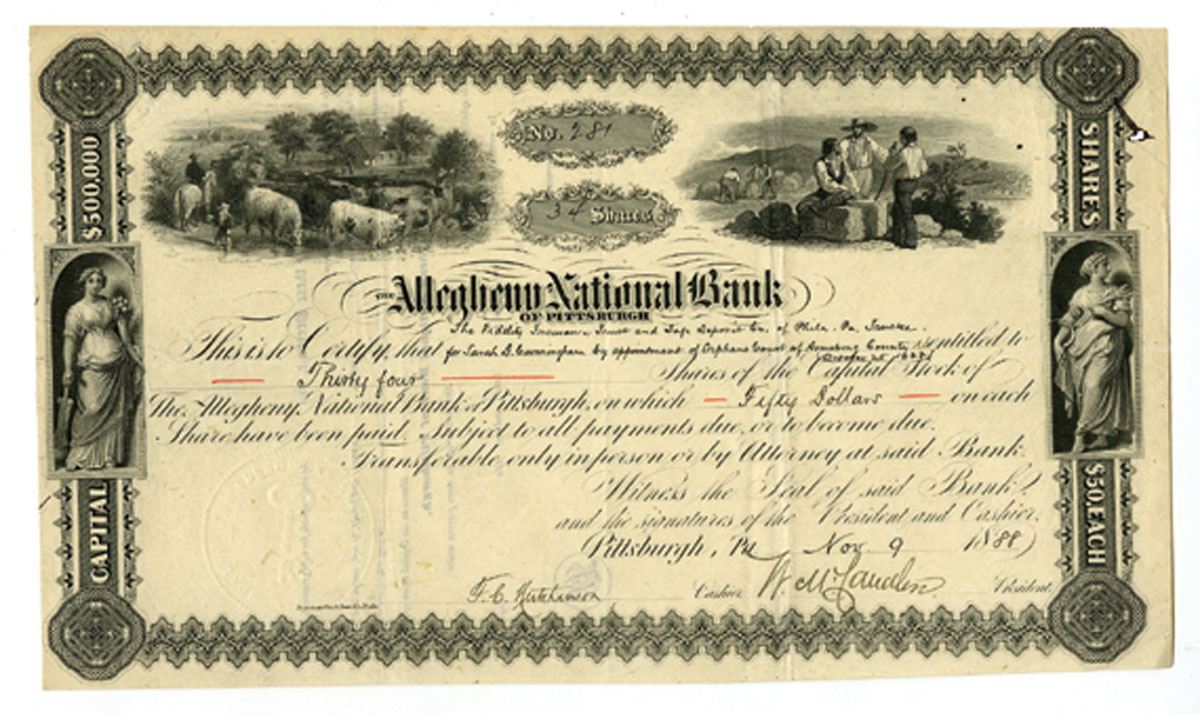 No. 281
34 Shares
$500,000
CAPITAL
SHARES
$50, EACH
THE Allegheny National Bank
OF PITTSBURGH
The Fidelity Insurance Trust and Safe Deposit Co. of Phila. Pa. Trustee
This is to Certify, that for Sarah B. Cunningham by appointment of Orphans Court of Armstrong County is entitled to
Thirty four Shares of the Capital Stock of
The Allegheny National Bank of Pittsburgh, on which Fifty Dollars on each
Share have been paid. Subject to all payments due, or to become due.
Transferable only in person or by Attorney at said Bank.
Witness the Seal of said Bank,
and the signatures of the President and Cashier.
Pittsburgh, Pa. Nov. 9 1888
F. C. Hutchinson Cashier W. McCandless President.